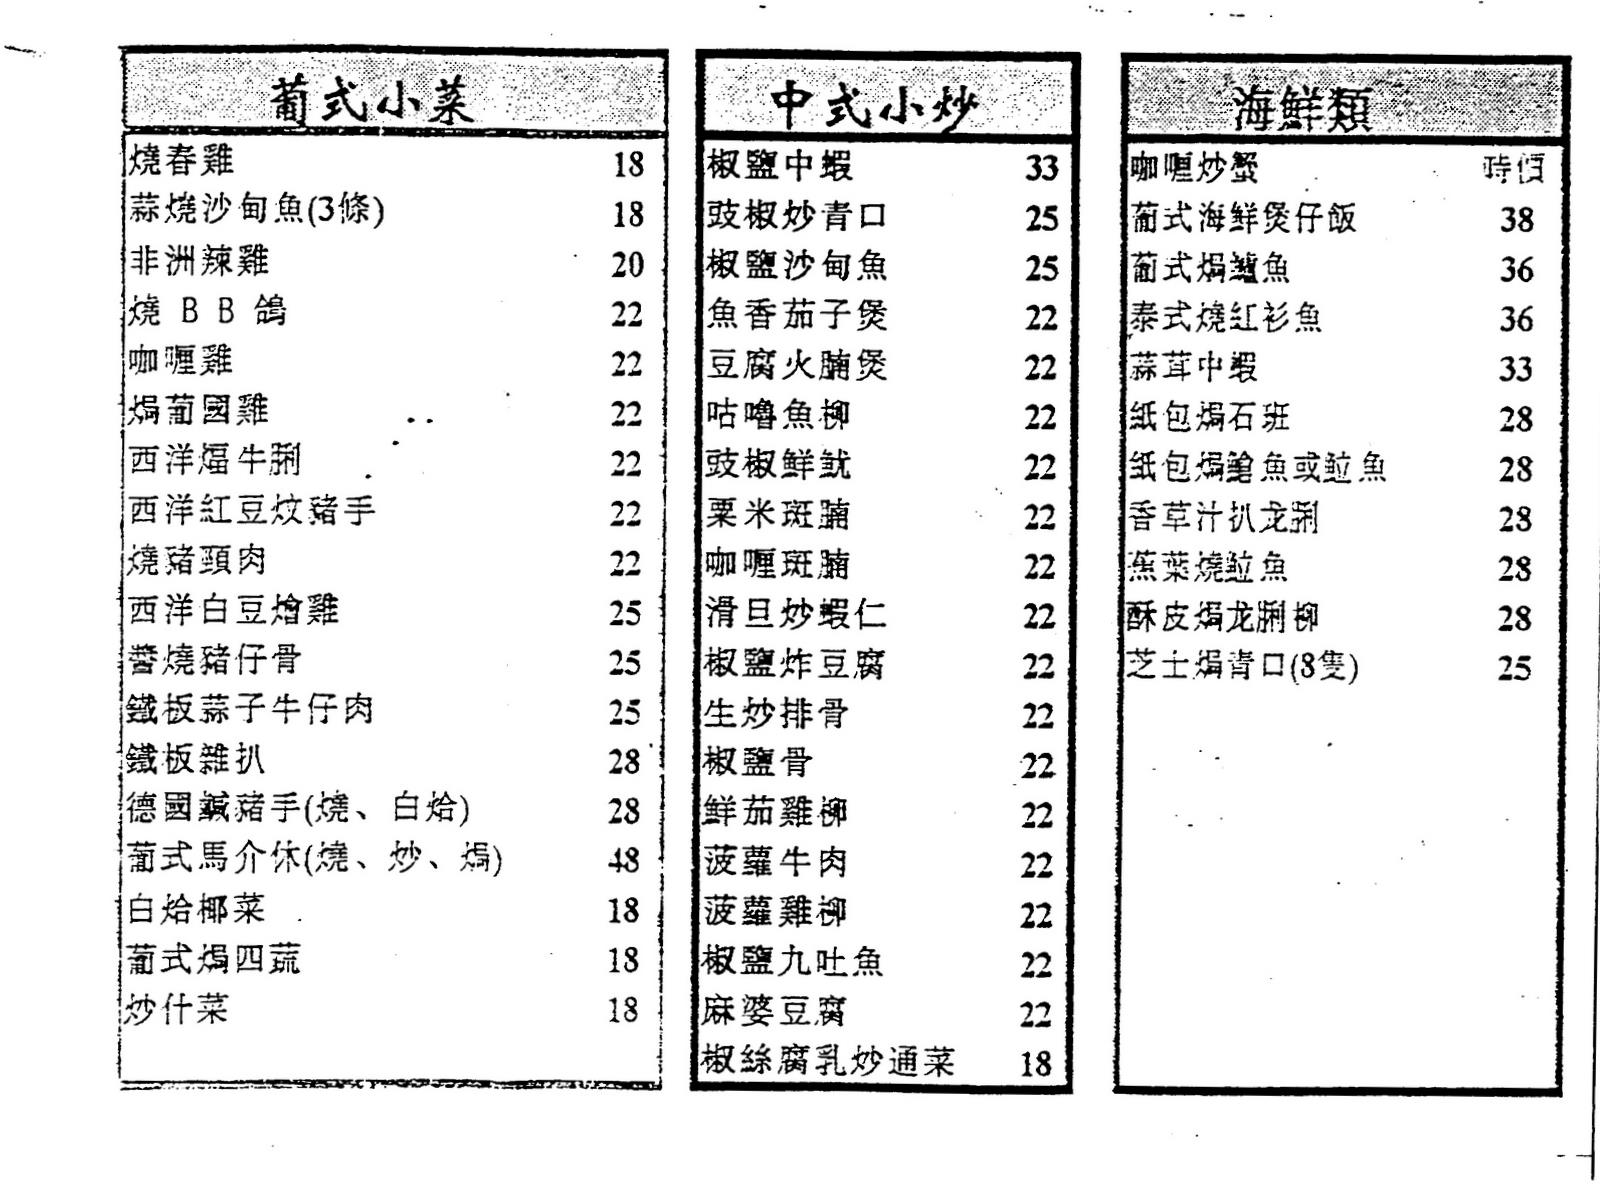 葡式小菜
燒春雞 18
蒜燒沙甸魚(3條) 18
非洲辣雞 20
燒 B B 鴿 22
咖喱雞 22
焗葡國雞 22
西洋煏牛脷 22
西洋紅豆炆豬手 22
燒豬頸肉 22
西洋白豆燴雞 25
醬燒豬仔骨 25
鐵板蒜子牛仔肉 25
鐵板雜扒 28
德國鹹豬手(燒、白烚) 28
葡式馬介休(燒、炒、焗) 48
白烚椰菜 18
葡式焗四蔬 18
炒什菜 18
中式小炒
椒鹽中蝦 33
豉椒炒青口 25
椒鹽沙甸魚 25
魚香茄子煲 22
豆腐火腩煲 22
咕嚕魚柳 22
豉椒鮮魷 22
粟米斑腩 22
咖喱斑腩 22
滑旦炒蝦仁 22
椒鹽炸豆腐 22
生炒排骨 22
椒鹽骨 22
鮮茄雞柳 22
菠蘿牛肉 22
菠蘿雞柳 22
椒鹽九吐魚 22
麻婆豆腐 22
椒絲腐乳炒通菜 18
海鮮類
咖喱炒蟹 時價
葡式海鮮煲仔飯 38
葡式焗鱸魚 36
泰式燒紅衫魚 36
蒜茸中蝦 33
紙包焗石班 28
紙包焗鎗魚或䱽魚 28
香草汁扒龙脷 28
蕉葉燒䱽魚 28
酥皮焗龙脷柳 28
芝士焗青口(8隻) 25